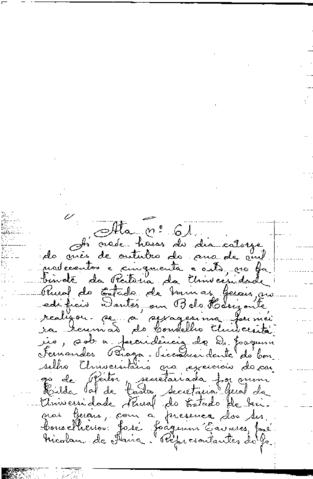 Ata nº 61.
Às nove horas do dia catorze
do mês de outubro do ano de mil
novecentos e cinquenta e oito, no Ga-
binete da Reitoria da Universidade
Rural do Estado de Minas Gerais, no
edifício Dantés, em Belo Horizonte
realizou-se a sexagésima primei-
ra reunião do Conselho Universitá-
rio, sob a presidência do Dr. Joaquim
Fernandes Braga. Vice-presidente do Con-
selho Universitário no exercício do car-
go de Reitor, secretariada por mim
de Castro, Secretária Geral da
Universidade Rural do Estado de Mi-
nas Gerais, com a presença dos srs.
Conselheiros: José Joaquim Tavares, José
Nicolau de Faria. Representantes do Go-